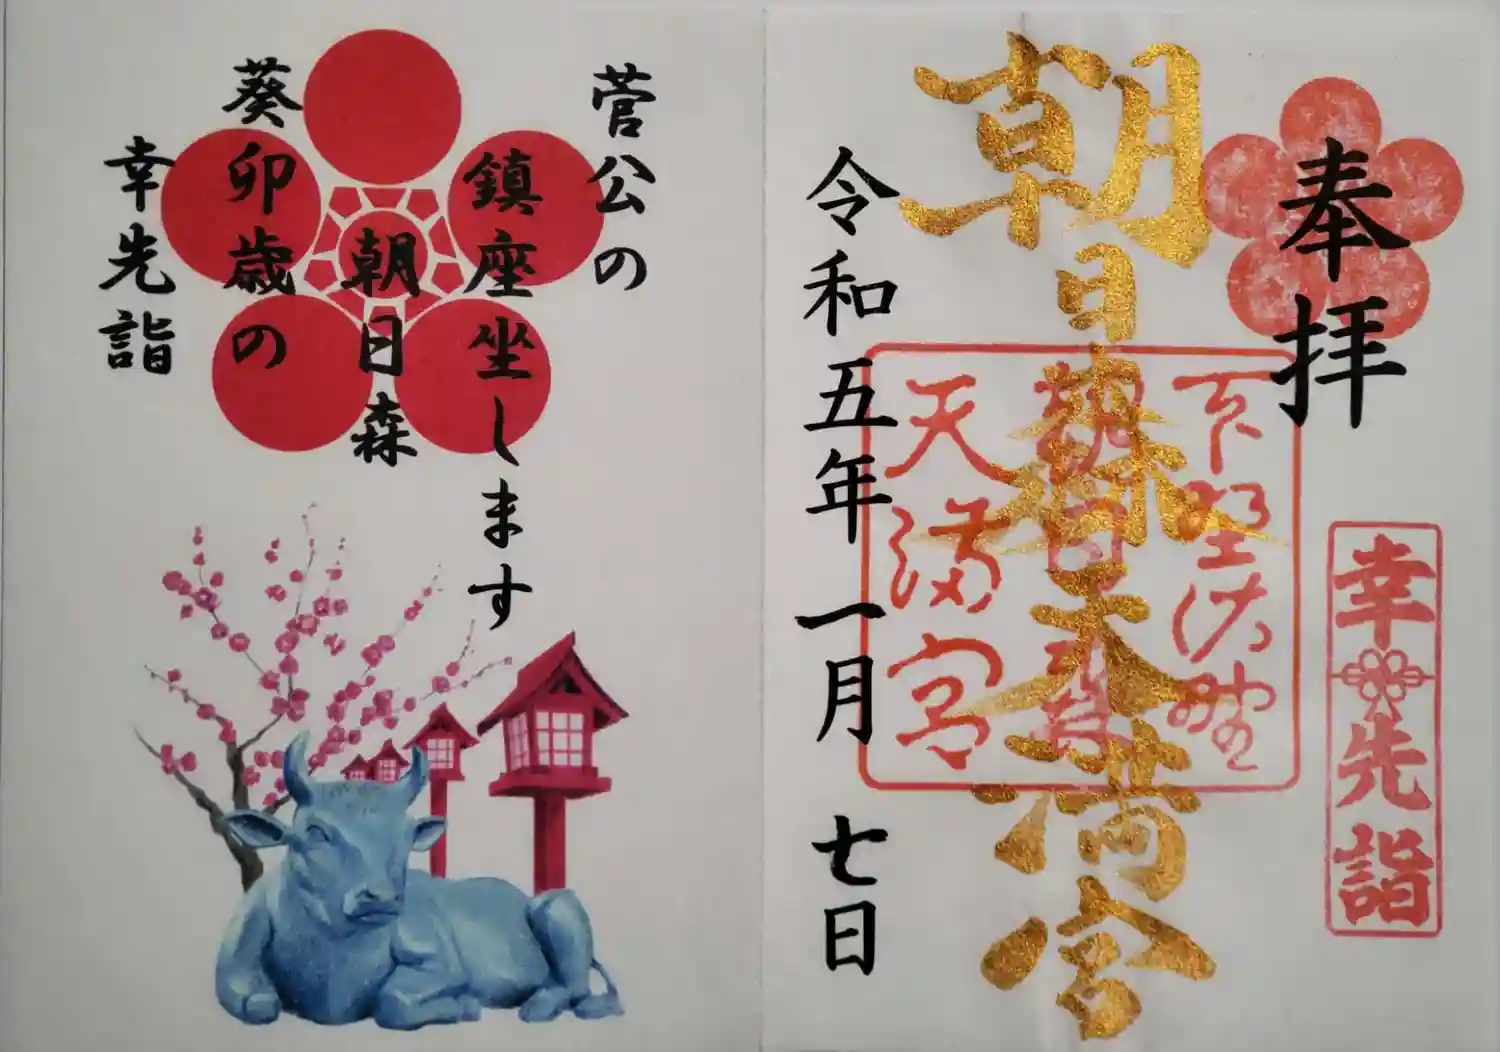 奉拝
幸先詣
下野佐野
朝日森
天満宮
朝日森天満宮
令和五年一月七日
菅公の
鎮座坐します
朝日森
葵卯歳の
幸先詣